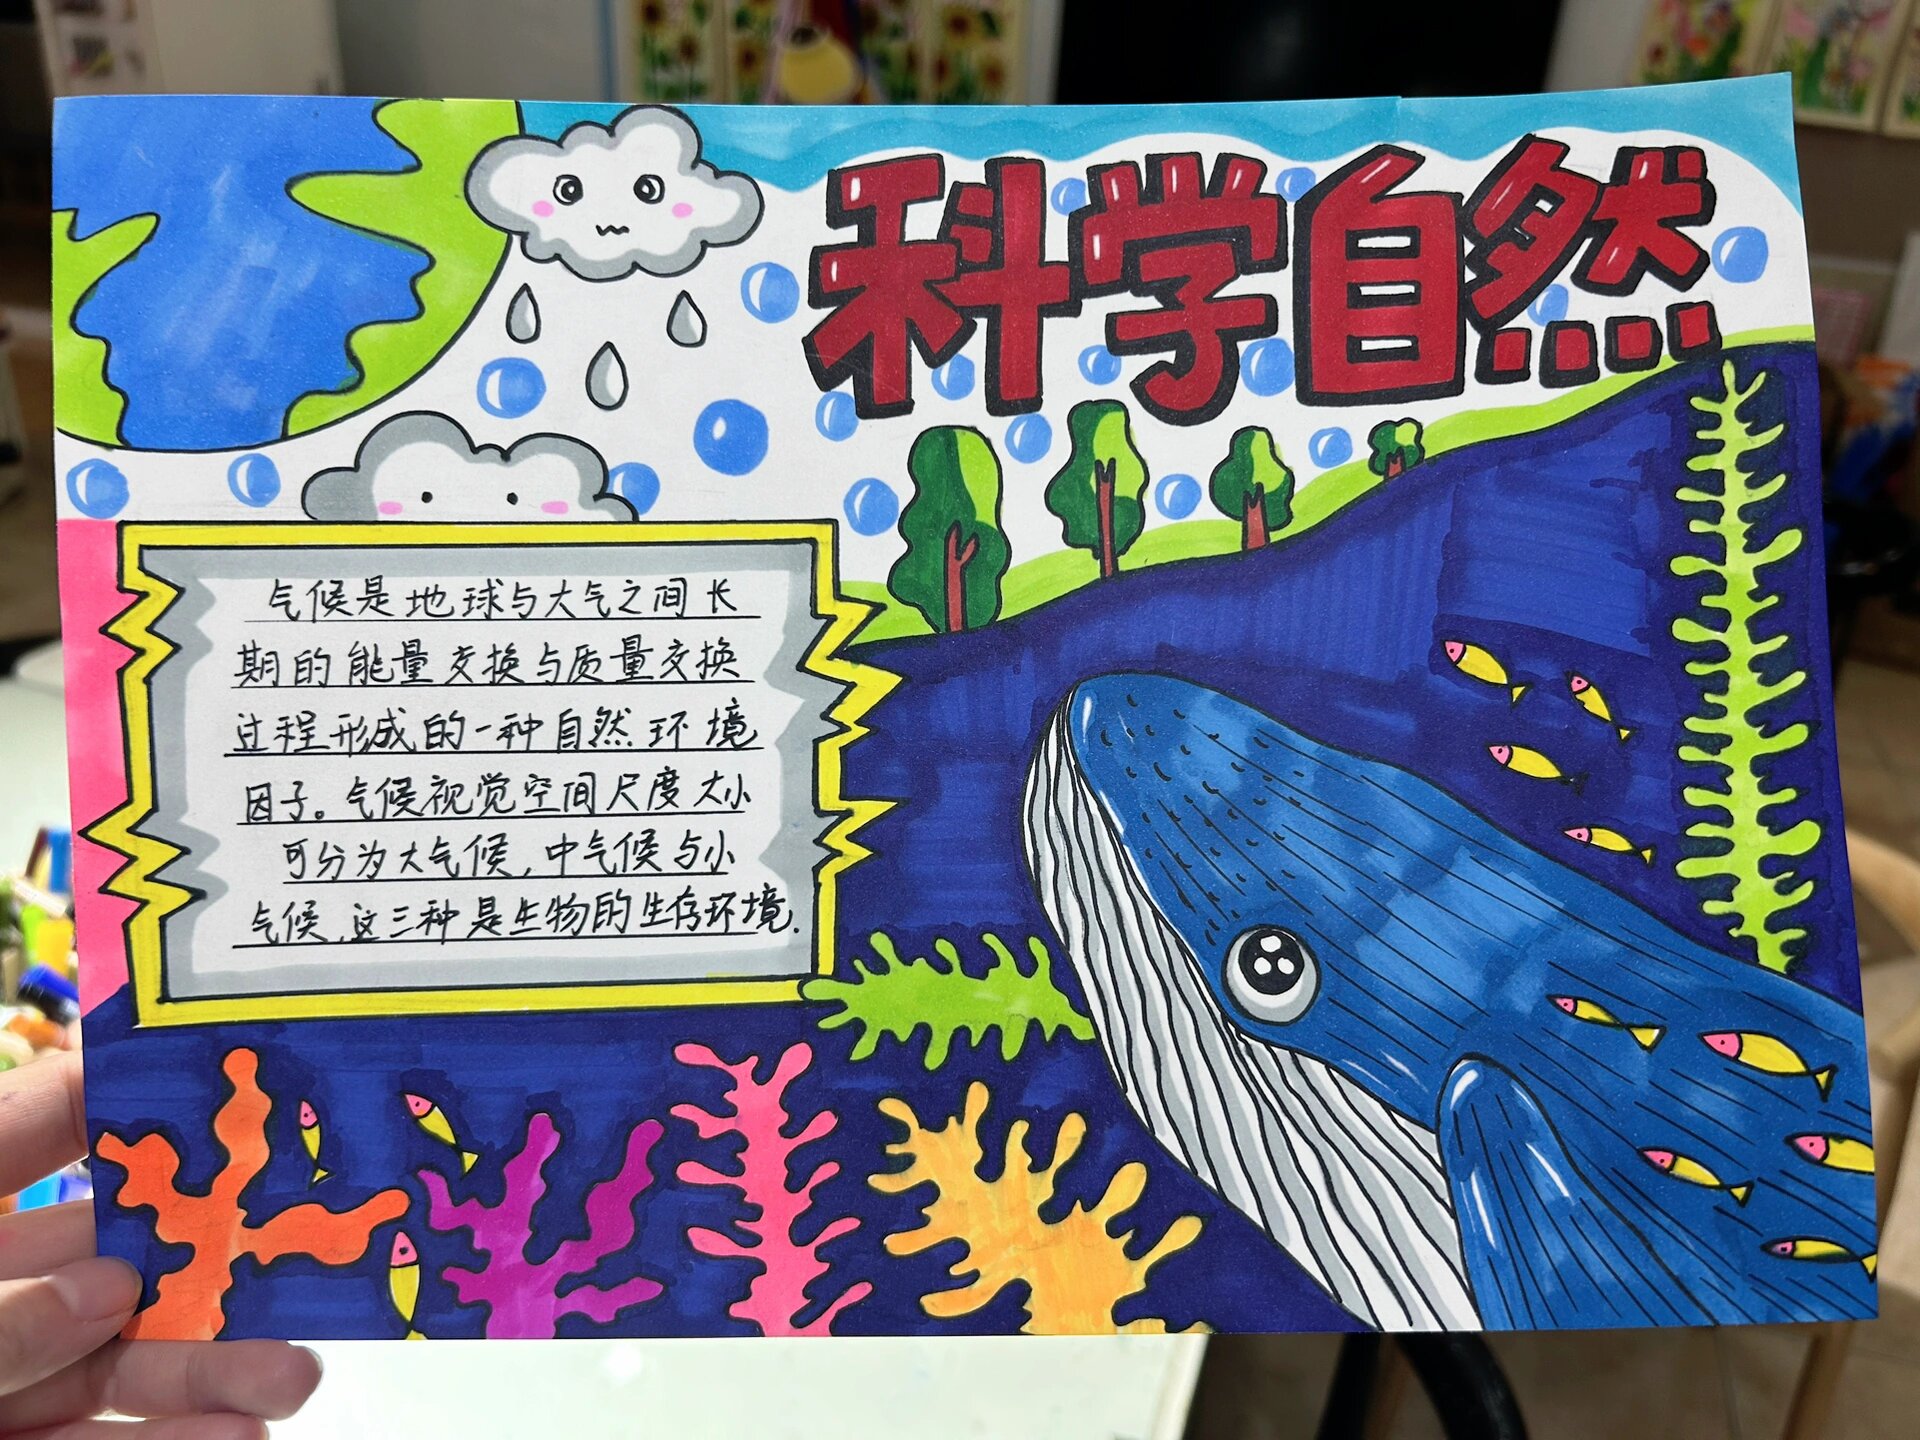 科学自然
气候是地球与大气之间长
期的能量交换与质量交换
过程形成的一种自然环境
因子。气候视觉空间尺度大小
可分为大气候,中气候与小
气候,这三种是生物的生存环境.